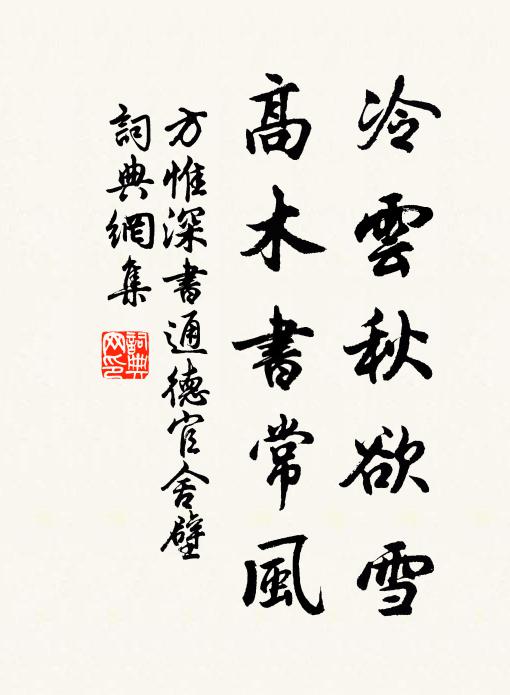 冷雲秋欲雪
高木書常風
方惟深書通德官舍壁
詞典網集
詞典網印